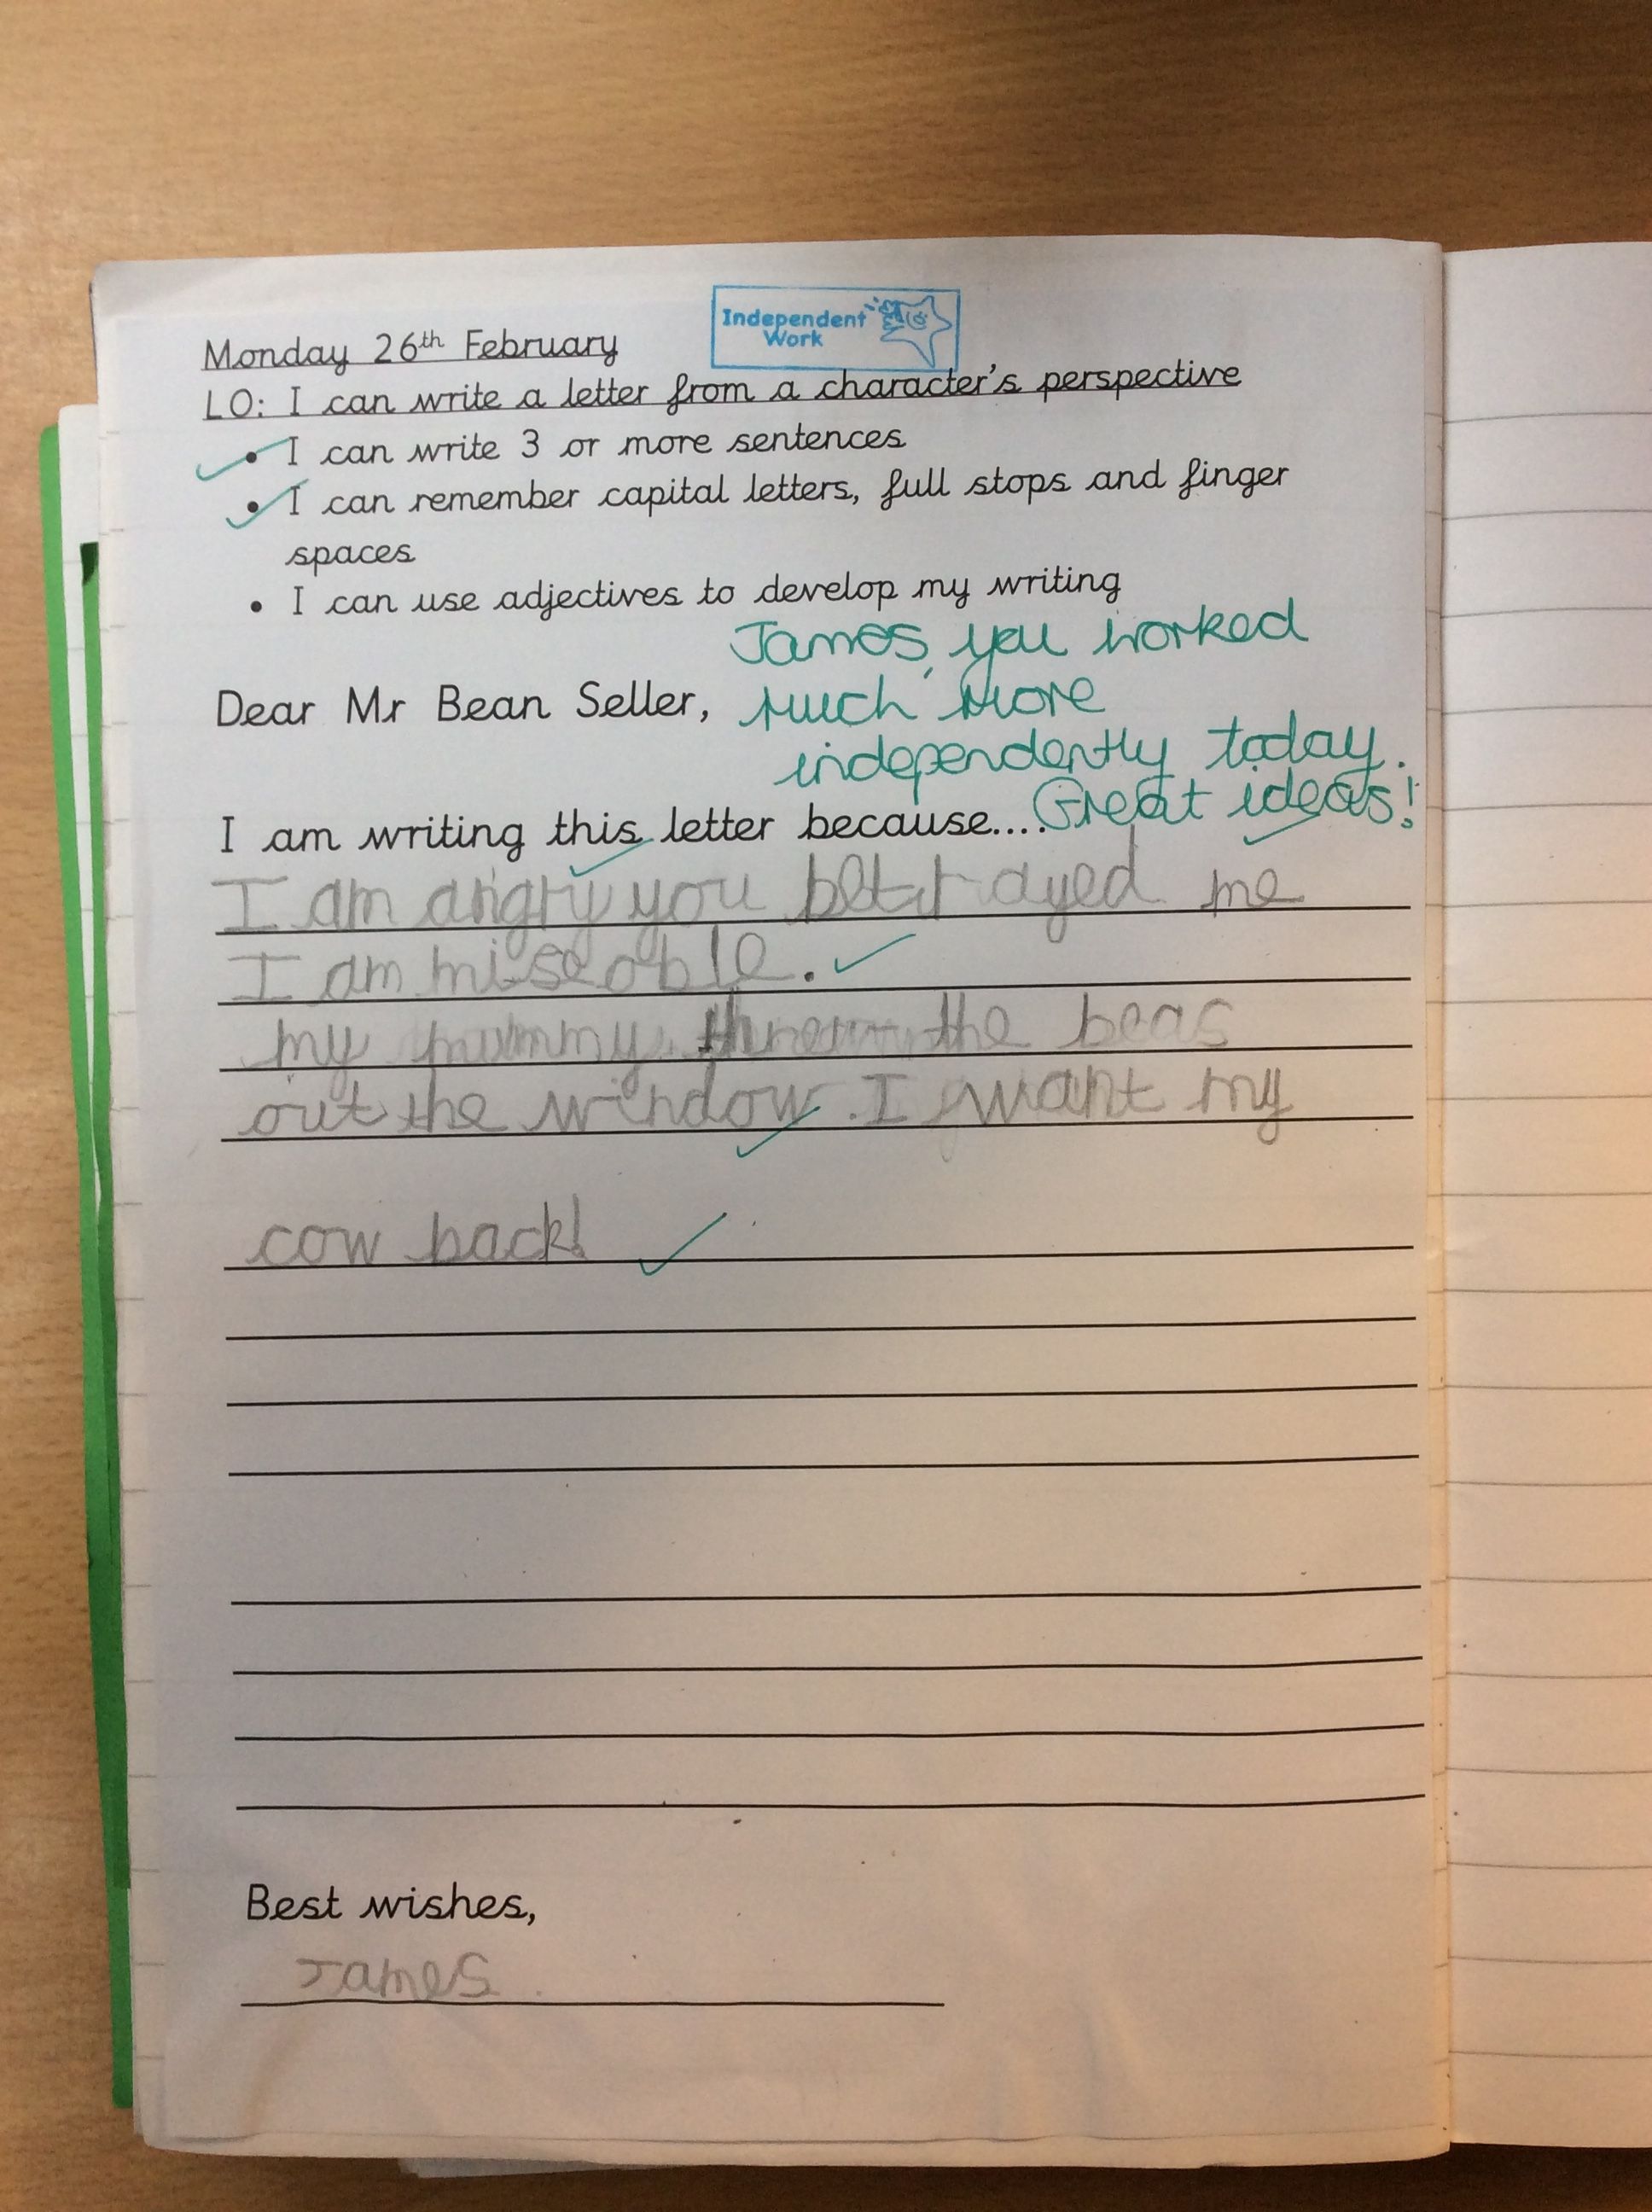 Independent
Work
Monday 26th February
LO: I can write a letter from a character's perspective
• I can write 3 or more sentences
• I can remember capital letters, full stops and finger
spaces
• I can use adjectives to develop my writing
James, you worked
Dear Mr Bean Seller,
much more
independently today.
I am writing this letter because....
Great ideas!
I am angry you betrayed me
I am miseable.
my mummy threw the beas
out the window. I want my
cow back!
Best wishes,
James